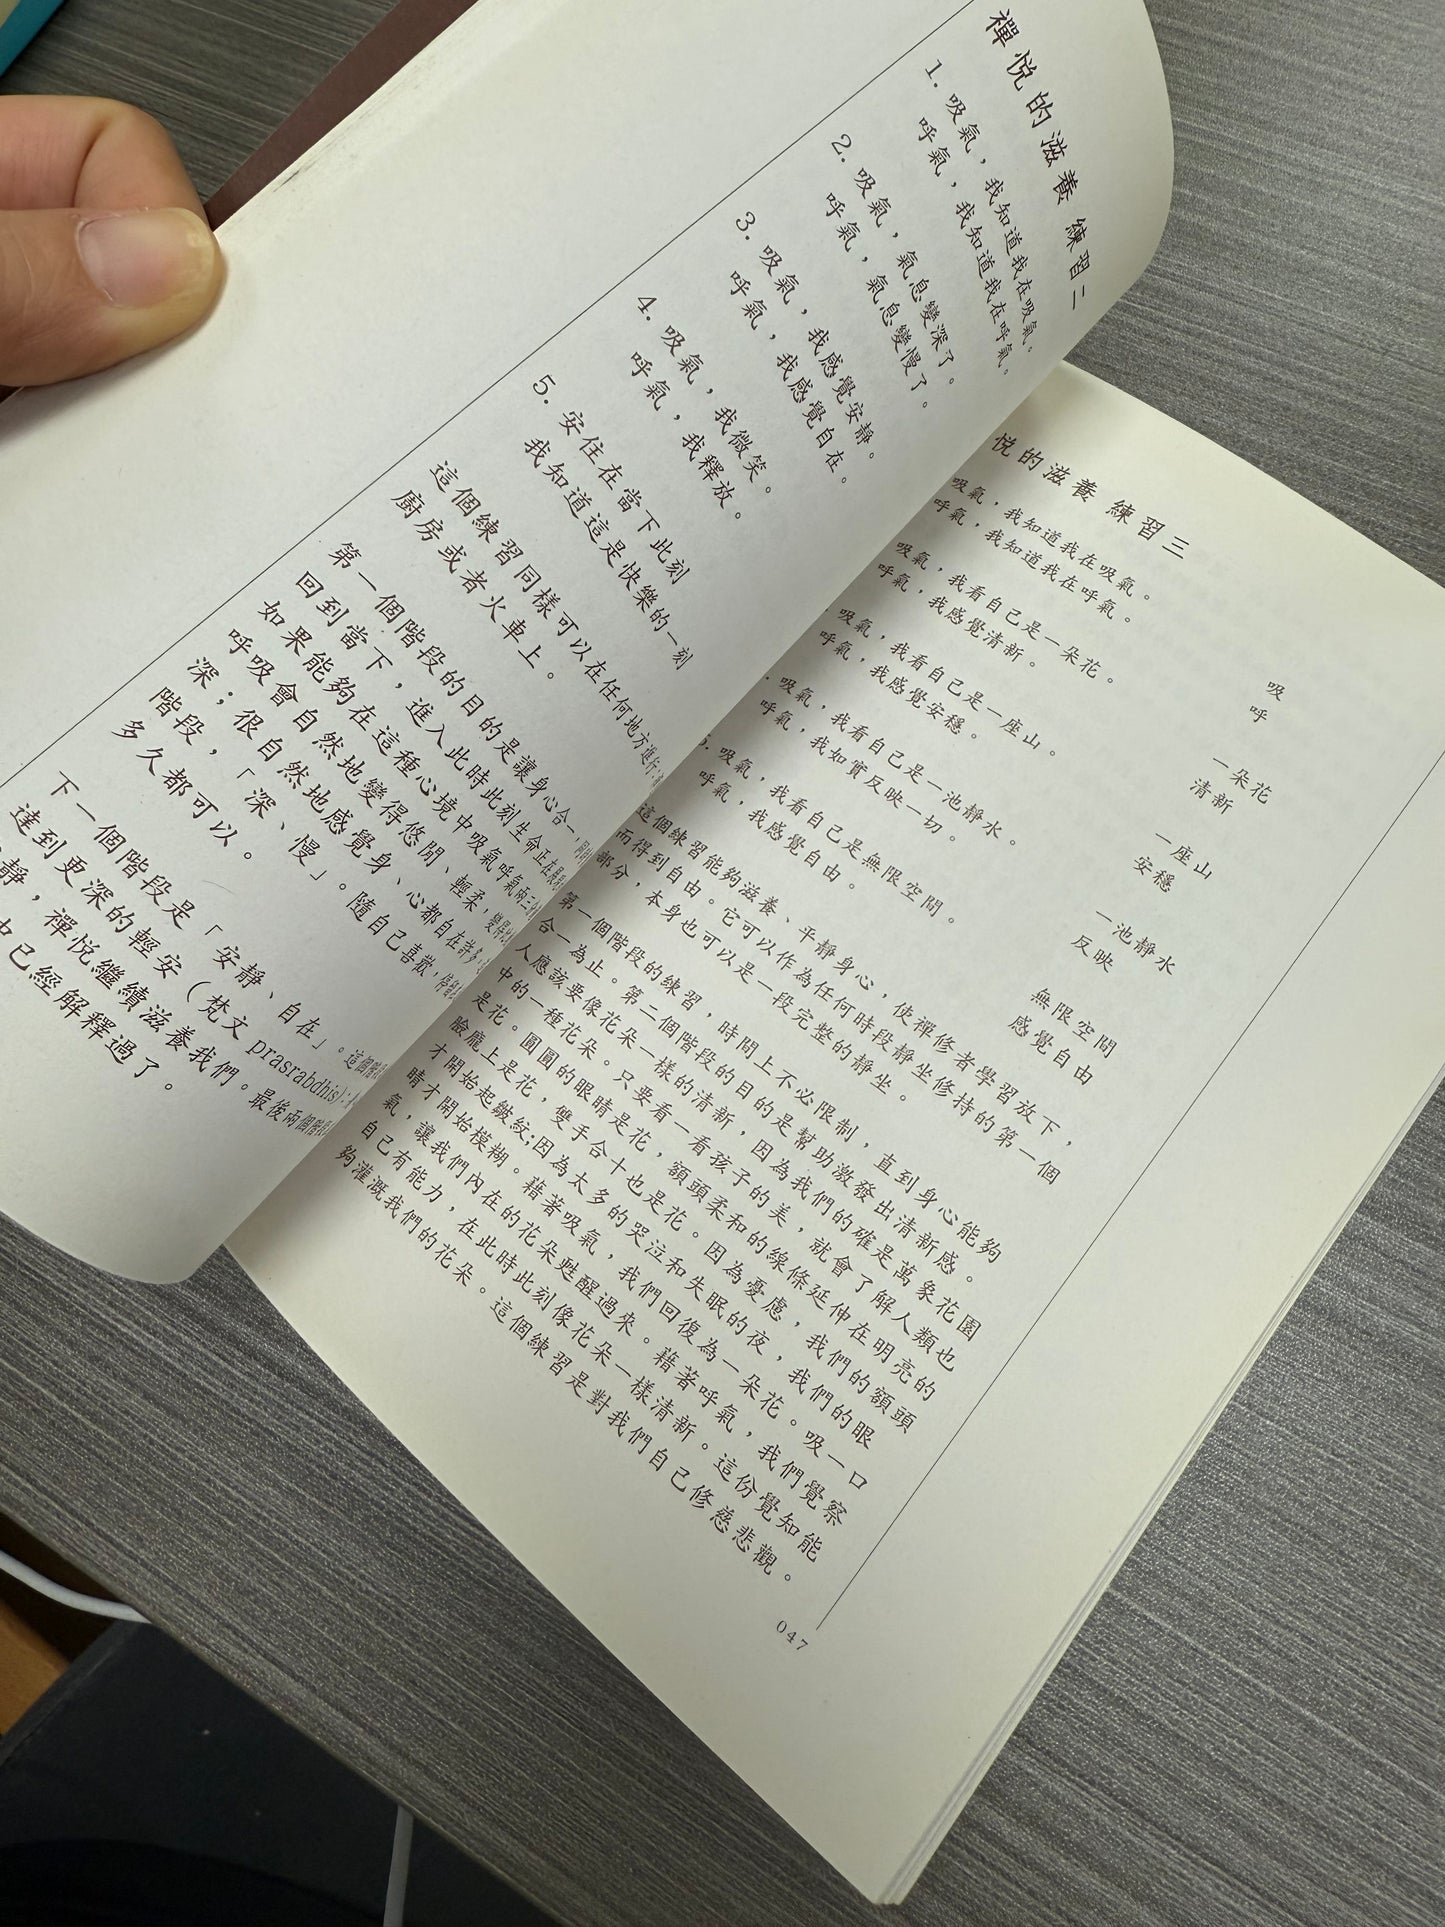 禪悅的滋養 練習二
1. 吸氣，我知道我在吸氣。
呼氣，我知道我在呼氣。
2. 吸氣，氣息變深了。
呼氣，氣息變慢了。
3. 吸氣，我感覺安靜。
呼氣，我感覺自在。
4. 吸氣，我微笑。
呼氣，我釋放。
5. 安住在當下此刻
我知道這是快樂的一刻
這個練習同樣可以在任何地方進行：
廚房或者火車上。
第一個階段的目的是讓身心合一，
回到當下，進入此時此刻生命正在
如果能夠在這種心境中吸氣呼氣兩三
呼吸會自然地變得悠閒、輕柔，
深；很自然地感覺身、心都自在許多，
階段，「深、慢」。隨自己喜歡，
多久都可以。
下一個階段是「安靜、自在」。這個
達到更深的輕安（梵文 prasrabdhis）；
靜，禪悅繼續滋養我們。最後兩個階段
中已經解釋過了。
悅的滋養 練習三
吸氣，我知道我在吸氣。 吸
呼氣，我知道我在呼氣。 呼
吸氣，我看自己是一朵花。 一朵花
呼氣，我感覺清新。 清新
吸氣，我看自己是一座山。 一座山
呼氣，我感覺安穩。 安穩
吸氣，我看自己是一池靜水。 一池靜水
呼氣，我如實反映一切。 反映
吸氣，我看自己是無限空間。 無限空間
呼氣，我感覺自由。 感覺自由
這個練習能夠滋養、平靜身心，使禪修者學習放下，
而得到自由。它可以作為任何時段靜坐修持的第一個
部分，本身也可以是一段完整的靜坐。
第一個階段的練習，時間上不必限制，直到身心能夠
合一為止。第二個階段的目的是幫助激發出清新感。
人應該要像花朵一樣的清新，因為我們的確是萬象花園
中的一種花朵。只要看一看孩子的美，就會了解人類也
是花。圓圓的眼睛是花，額頭柔和的線條延伸在明亮的
臉龐上是花，雙手合十也是花。因為憂慮，我們的額頭
才開始起皺紋；因為太多的哭泣和失眠的夜，我們的眼
睛才開始模糊。藉著吸氣，我們回復為一朵花。吸一口
氣，讓我們內在的花朵甦醒過來。藉著呼氣，我們覺察
自己有能力，在此時此刻像花朵一樣清新。這份覺知能
夠灌溉我們的花朵。這個練習是對我們自己修慈悲觀。
047